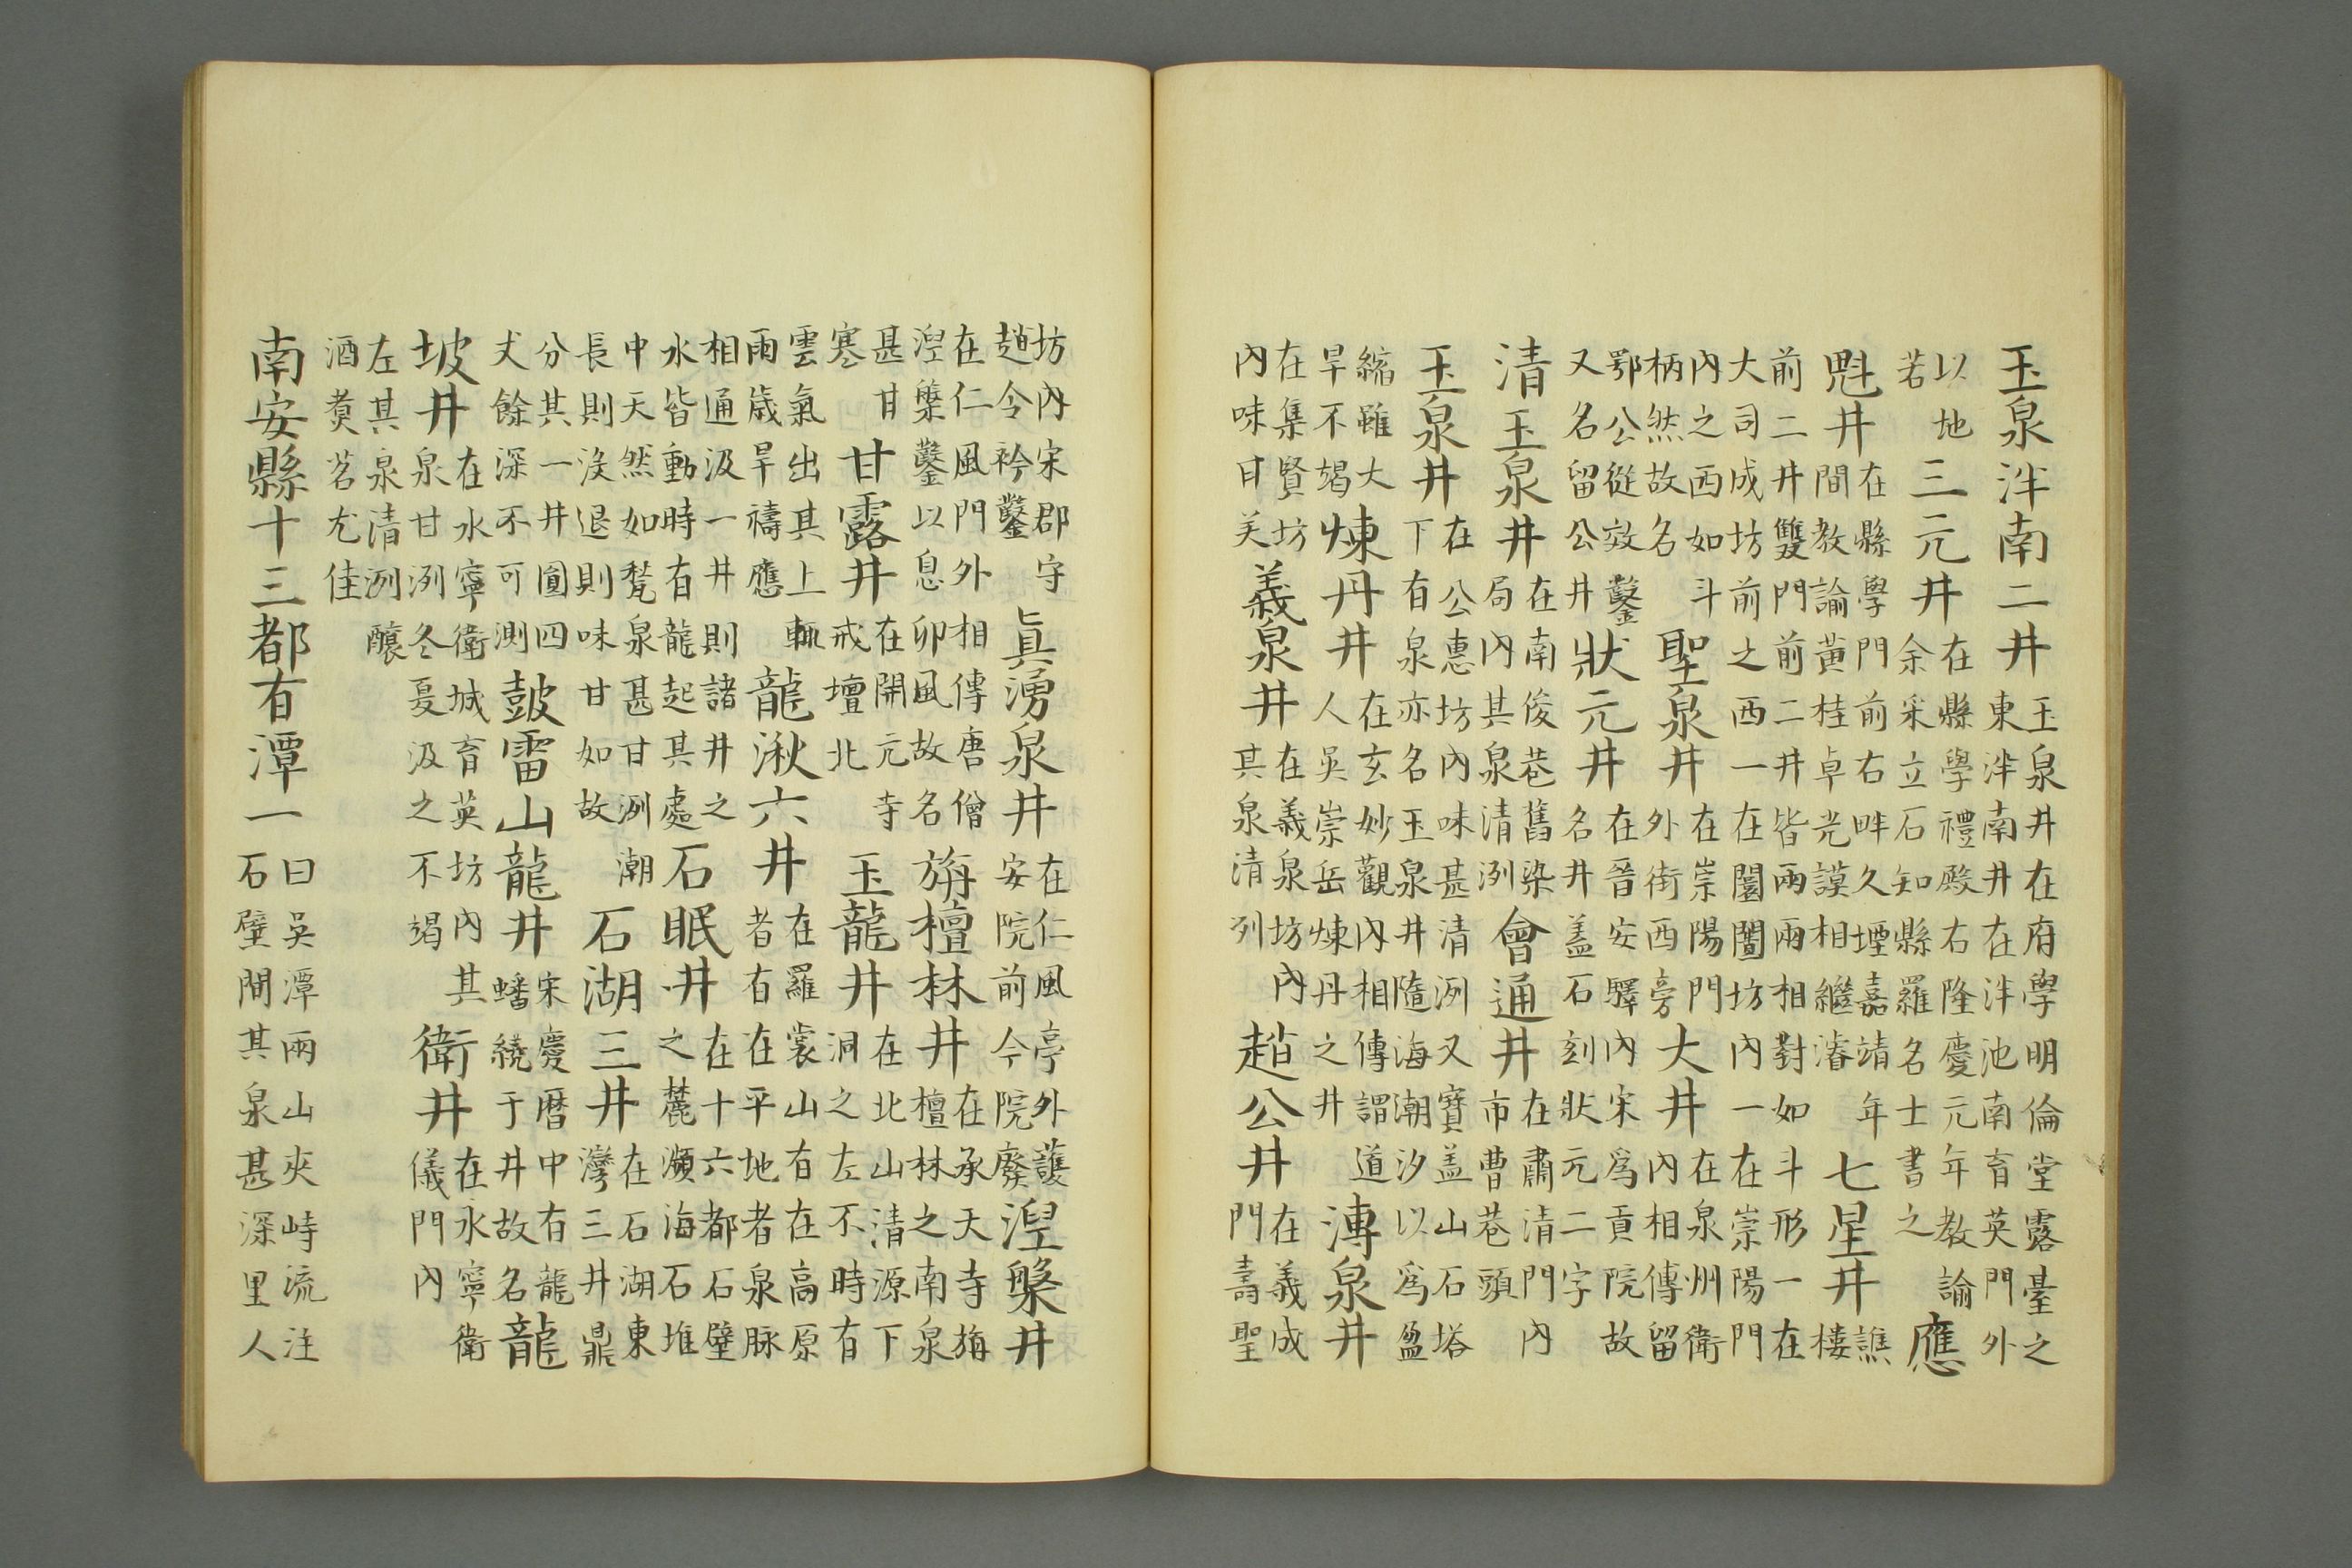 玉泉泮南二井玉泉井在府學明倫堂露臺之東泮南井在泮池南育英門外
以地若三元井在縣學禮殿右隆慶元年教諭余采立石知縣羅名士書之應
魁井在縣學門前右畔久堙嘉靖年間教諭黃桂卓光謨相繼濬七星井譙樓在
前二井雙門前二井皆兩兩相對如斗形一在大司成坊前之西一在闤闠坊內一在崇陽門
內之西如斗柄然故名聖泉井在崇陽門外街西旁大井在泉州衛內相傳留
鄂公從效鑿又名留公井狀元井在晉安驛內宋爲貢院故名井盖石刻狀元二字
清玉泉井在南俊巷舊染局內其泉清洌會通井在肅清門內市曹巷頭
玉泉井在公惠坊內味甚清洌又寶盖山石塔下有泉亦名玉泉井隨海潮汐以爲盈
縮雖大旱不竭煉丹井在玄妙觀內相傳謂道人吳崇岳煉丹之井漙泉井
在集賢坊內味甘美義泉井在義泉坊內其泉清列趙公井在義成門壽聖
坊內宋郡守趙令衿鑿眞湧泉井在仁風亭外護安院前今院廢湼槃井
在仁風門外相傳唐僧湼槃鑿以息卯風故名旃檀林井在承天寺旃檀林之南泉
甚甘寒甘露井在開元寺戒壇北玉龍井在北山清源下洞之左不時有
雲氣出其上輒雨歲旱禱應龍湫六井在羅裳山有在高原者有在平地者泉脉
相通汲一井則諸井之水皆動時有龍起其處石眠井在十六都石壁之麓瀕海石堆
中天然如甃泉甚甘洌潮長則沒退則味甘如故石湖三井在石湖東灣三井鼎
分其一井圓四丈餘深不可測皷雷山龍井宋慶曆中有龍蟠繞于井故名龍
坡井在水寧衛城育英坊內其泉甘洌冬夏汲之不竭衛井在永寧衛儀門內
左其泉清洌釀酒煑茗尤佳
南安縣十三都有潭一曰吳潭兩山夾峙流注石壁間其泉甚深里人